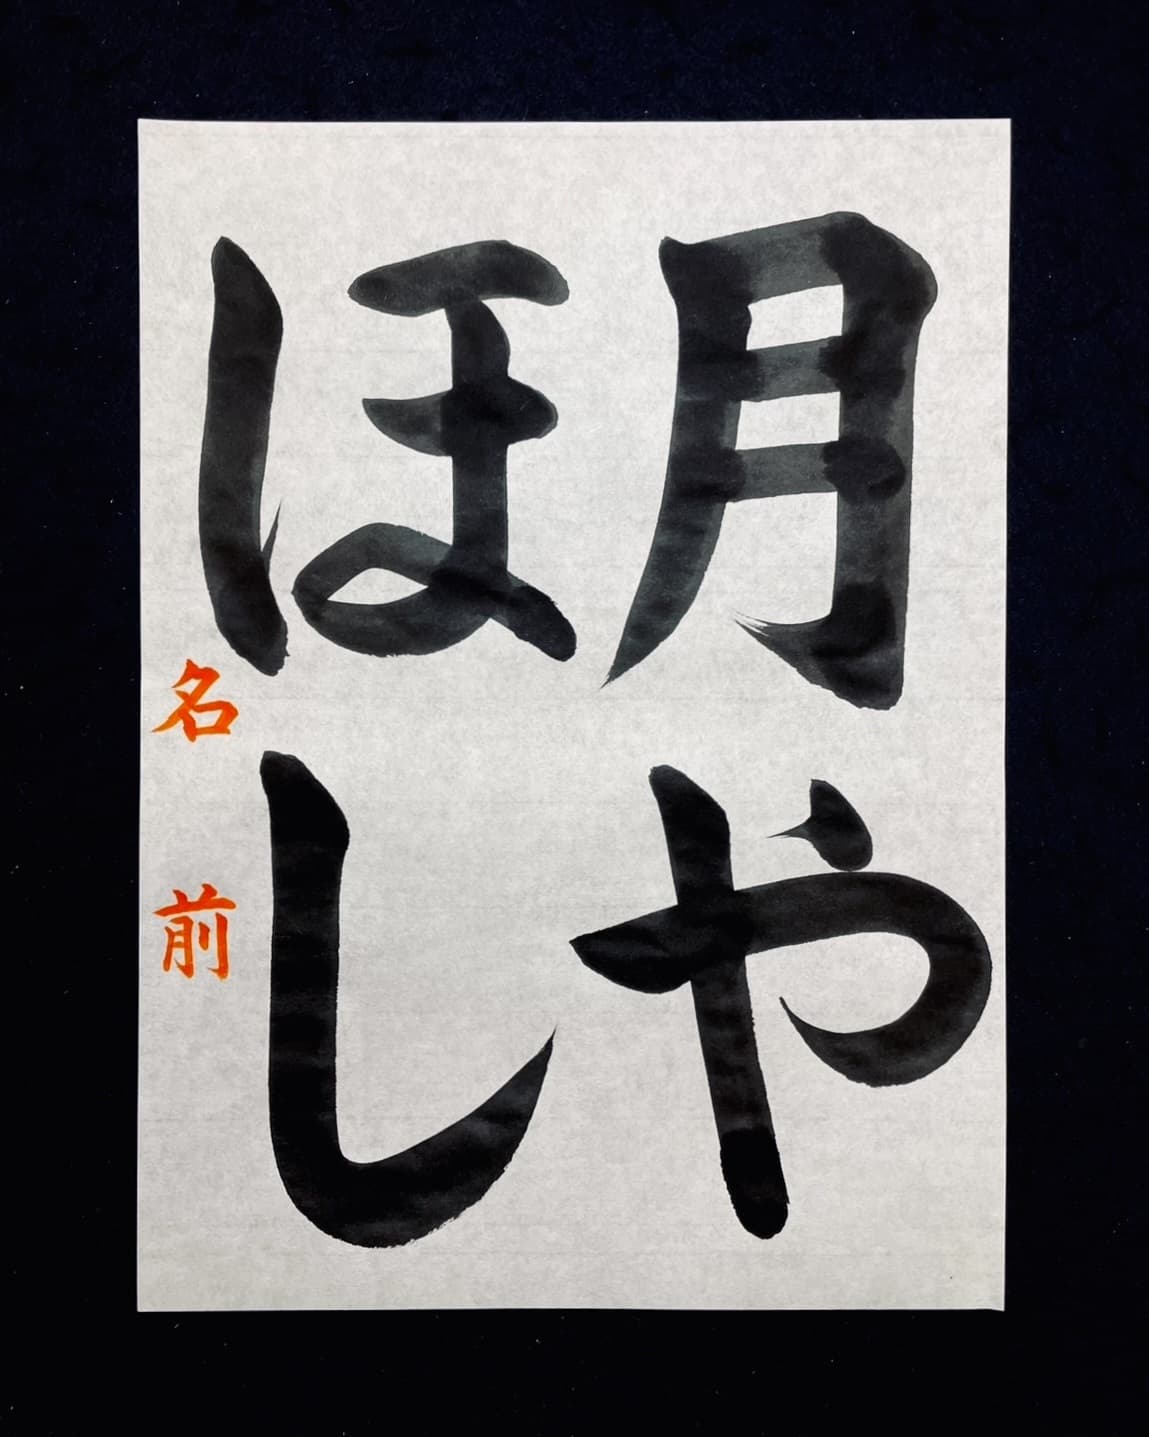 月や
ほし
名前